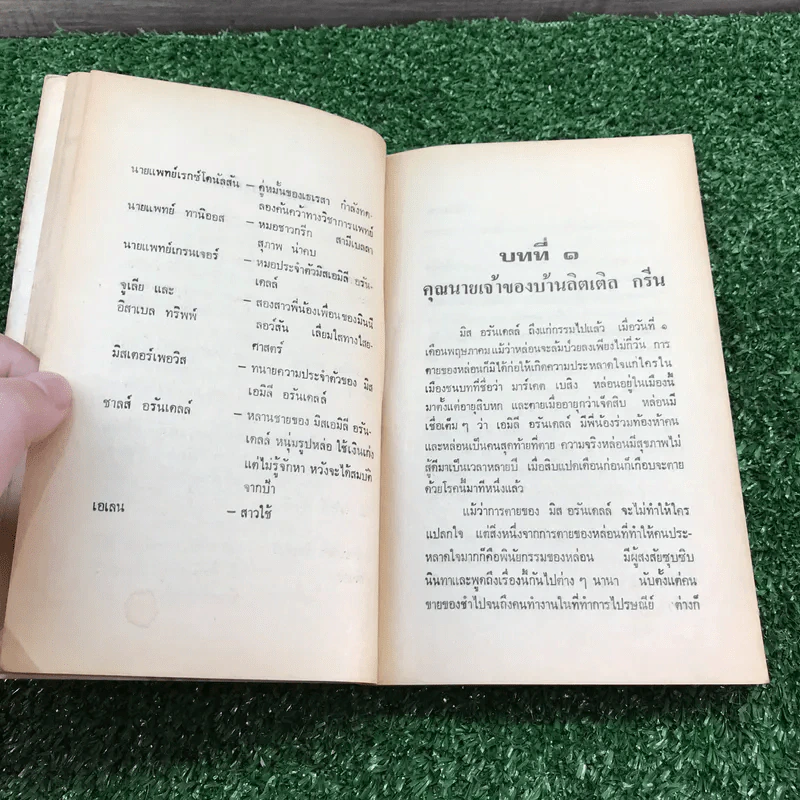 นายแพทย์เรกซ์โดนัลสัน – คู่หมั้นของเธเรสา กำลังทด-
ลองค้นคว้าทางวิชาการแพทย์
นายแพทย์ ทานิออส – หมอชาวกรีก สามีเบลลา
สุภาพ น่าคบ
นายแพทย์เกรนเจอร์ – หมอประจำตัวมิสเอมิลี อรัน-
เดลล์
จูเลีย และ
อิสาเบล ทริพพ์ – สองสาวพี่น้องเพื่อนของมินนี
ลอว์สัน เลื่อมใสทางไสย-
ศาสตร์
มิสเตอร์เพอวิส – ทนายความประจำตัวของ มิส
เอมิลี อรันเดลล์
ชาลส์ อรันเดลล์ – หลานชายของ มิสเอมิลี อรัน-
เดลล์ หนุ่มรูปหล่อ ใช้เงินเก่ง
แต่ไม่รู้จักหา หวังจะได้สมบัติ
จากป้า
เอเลน – สาวใช้
บทที่ ๑
คุณนายเจ้าของบ้านลิตเติล กรีน
มิส อรันเดลล์ ถึงแก่กรรมไปแล้ว เมื่อวันที่ ๑
เดือนพฤษภาคมแม้ว่าหล่อนจะล้มป่วยลงเพียงไม่กี่วัน การ
ตายของหล่อนก็มิได้ก่อให้เกิดความประหลาดใจแก่ใครใน
เมืองชนบทที่ชื่อว่า มาร์เคต เบสิง หล่อนอยู่ในเมืองนี้
มาตั้งแต่อายุสิบหก และตายเมื่ออายุกว่าเจ็ดสิบ หล่อนมี
ชื่อเต็มๆ ว่า เอมิลี อรันเดลล์ มีพี่น้องร่วมท้องห้าคน
และหล่อนเป็นคนสุดท้ายที่ตาย ความจริงหล่อนมีสุขภาพไม่
สู้ดีมาเป็นเวลาหลายปี เมื่อสิบแปดเดือนก่อนก็เกือบจะตาย
ด้วยโรคนี้มาทีหนึ่งแล้ว
แม้ว่าการตายของ มิส อรันเดลล์ จะไม่ทำให้ใคร
แปลกใจ แต่สิ่งหนึ่งจากการตายของหล่อนที่ทำให้คนประ-
หลาดใจมากก็คือพินัยกรรมของหล่อน มีผู้สงสัยซุบซิบ
นินทาและพูดถึงเรื่องนี้กันไปต่างๆ นานา นับตั้งแต่คน
ขายของชำไปจนถึงคนทำงานในที่ทำการไปรษณีย์ ต่างก็